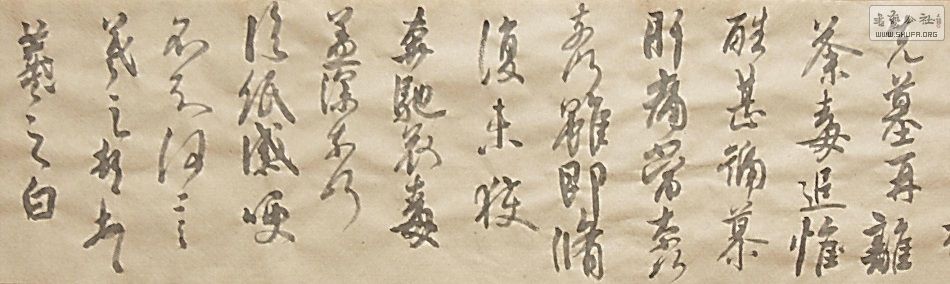 先墓再離
荼毒追惟
酷甚號慕
肝痛當奈何
奈何雖即脩
復未獲
奔馳哀毒
益深奈何
臨紙感哽
不知何言
羲之頓首
羲之白
书艺公社
WWW.SHUFA.ORG